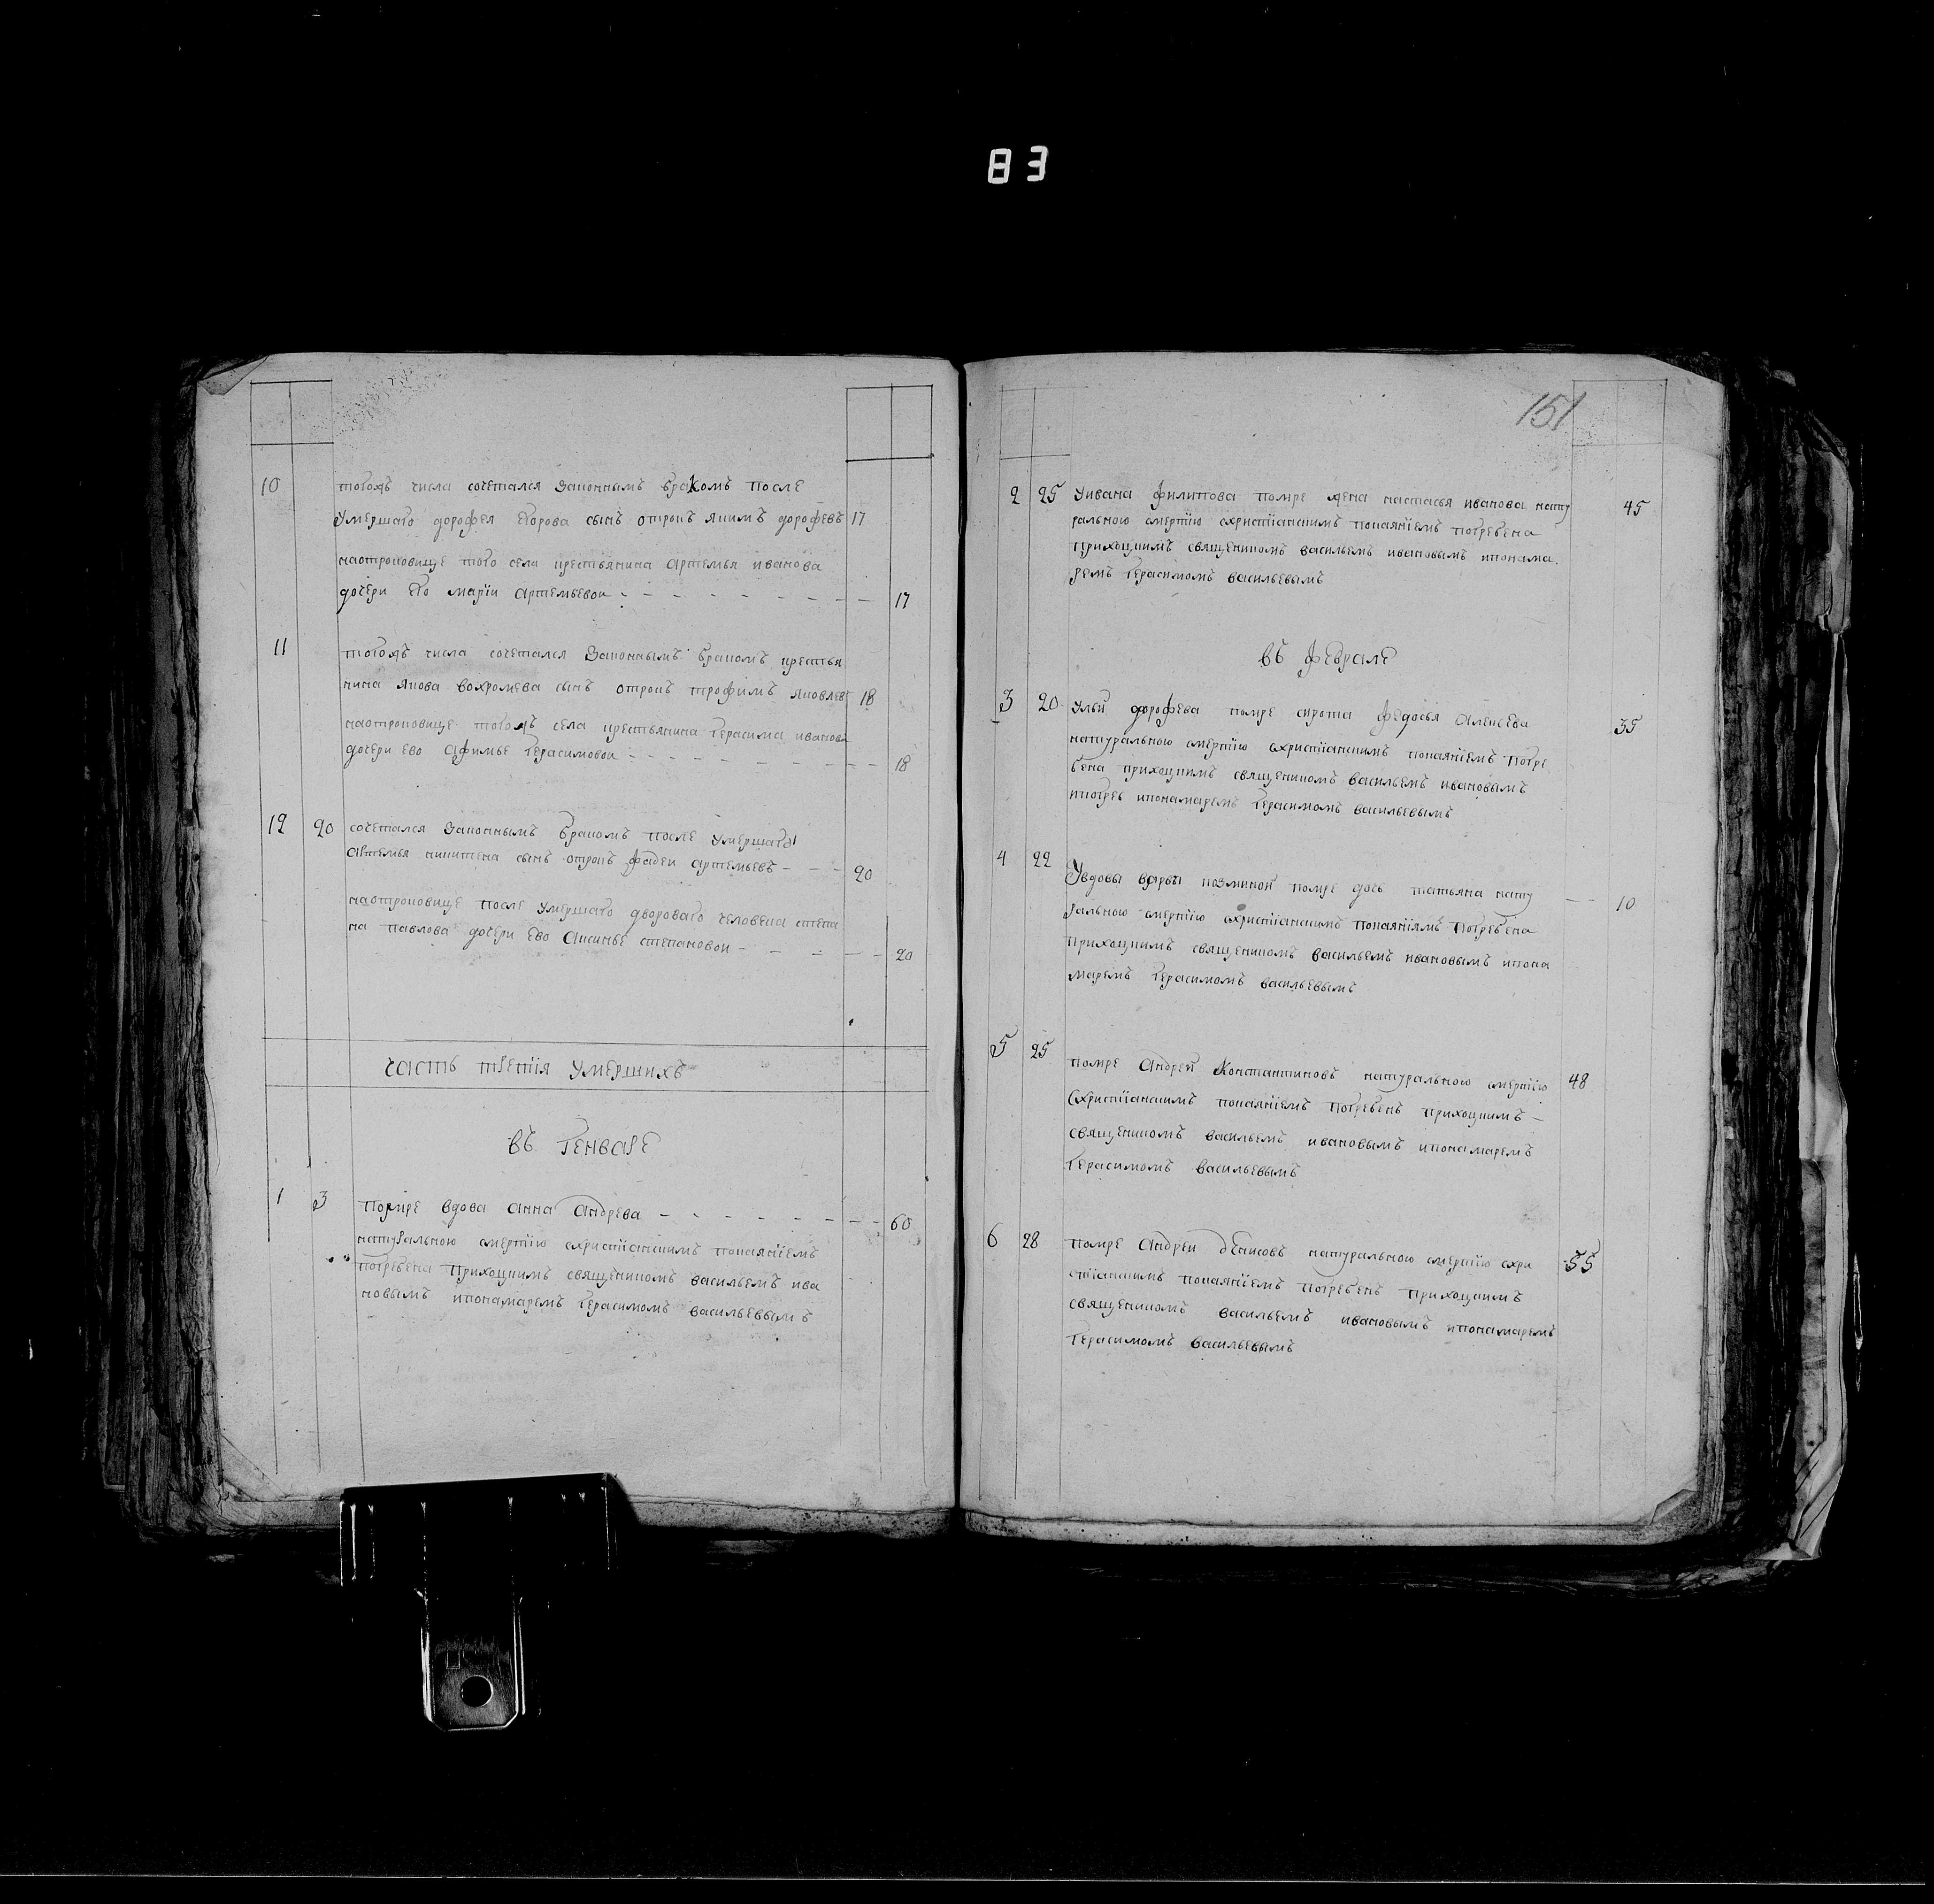 83
10 тогожъ числа сочетался Законнымъ бракомъ после
Умершаго дорофея Егорова сынъ отрокъ якимъ дорофѣевъ 17
наотроковице того села крестьянина Артемья иванова
дочери Его марїи Артемьевои 17
11 тогожъ числа сочетался Законнымъ бракомъ крестья
нина якова вохромеева сынъ отрокъ трофимъ яковлевъ 18
наотроковице тогожъ села крестьянина Герасима иванова
дочери ево Афимье Герасимовои 18
12 20 сочетался Законнымъ бракомъ после умершаго
Артемья никитена сынъ отрокъ фадеи артемьевъ 20
наотроковице после умершаго двороваго человека степа
на павлова дочери Ево Аксинье степановои 20
часть третїя умершихъ
въ Генваре
1 3 помре вдова анна андрева 60
натуральною смертїю схристїанскимъ покаянїемъ
погребена Приходцкимъ священикомъ васильемъ ива
новымъ ипонамаремъ Герасимомъ васильевымъ
151
2 25 Уивана филипова помре жена настасья иванова нату 45
ральною смертїю схристїанскимъ покаянїемъ погребена
приходцкимъ священикомъ васильемъ ивановымъ ипонама
ремъ Герасимомъ васильевымъ
въ феврале
3 20 Ульи дорофева помре сирота федосья Алексева 35
натуральною смертїю схристїанскимъ покаянїемъ погре
бена приходцкимъ священикомъ васильемъ ивановымъ
ипогреб ипонамаремъ Герасимомъ васильевымъ
4 22 Увдовы варвы козминои помре дочь татьяна нату 10
ральною смертїю схристїанскимъ покаянїямъ погребена
приходцкимъ священикомъ васильемъ ивановымъ ипона
маремъ Герасимомъ васильевымъ
5 25 помре Андреи Константиновъ натуральною смертїю 48
схристїанскимъ покаянїемъ погребенъ приходцкимъ
священикомъ васильемъ ивановымъ ипонамаремъ
Герасимомъ васильевымъ
6 28 помре Андреи денисовъ натуральною смертїю схри 55
стїанскимъ покаянїемъ погребенъ приходцкимъ
священикомъ васильемъ ивановымъ ипонамаремъ
Герасимомъ васильевымъ